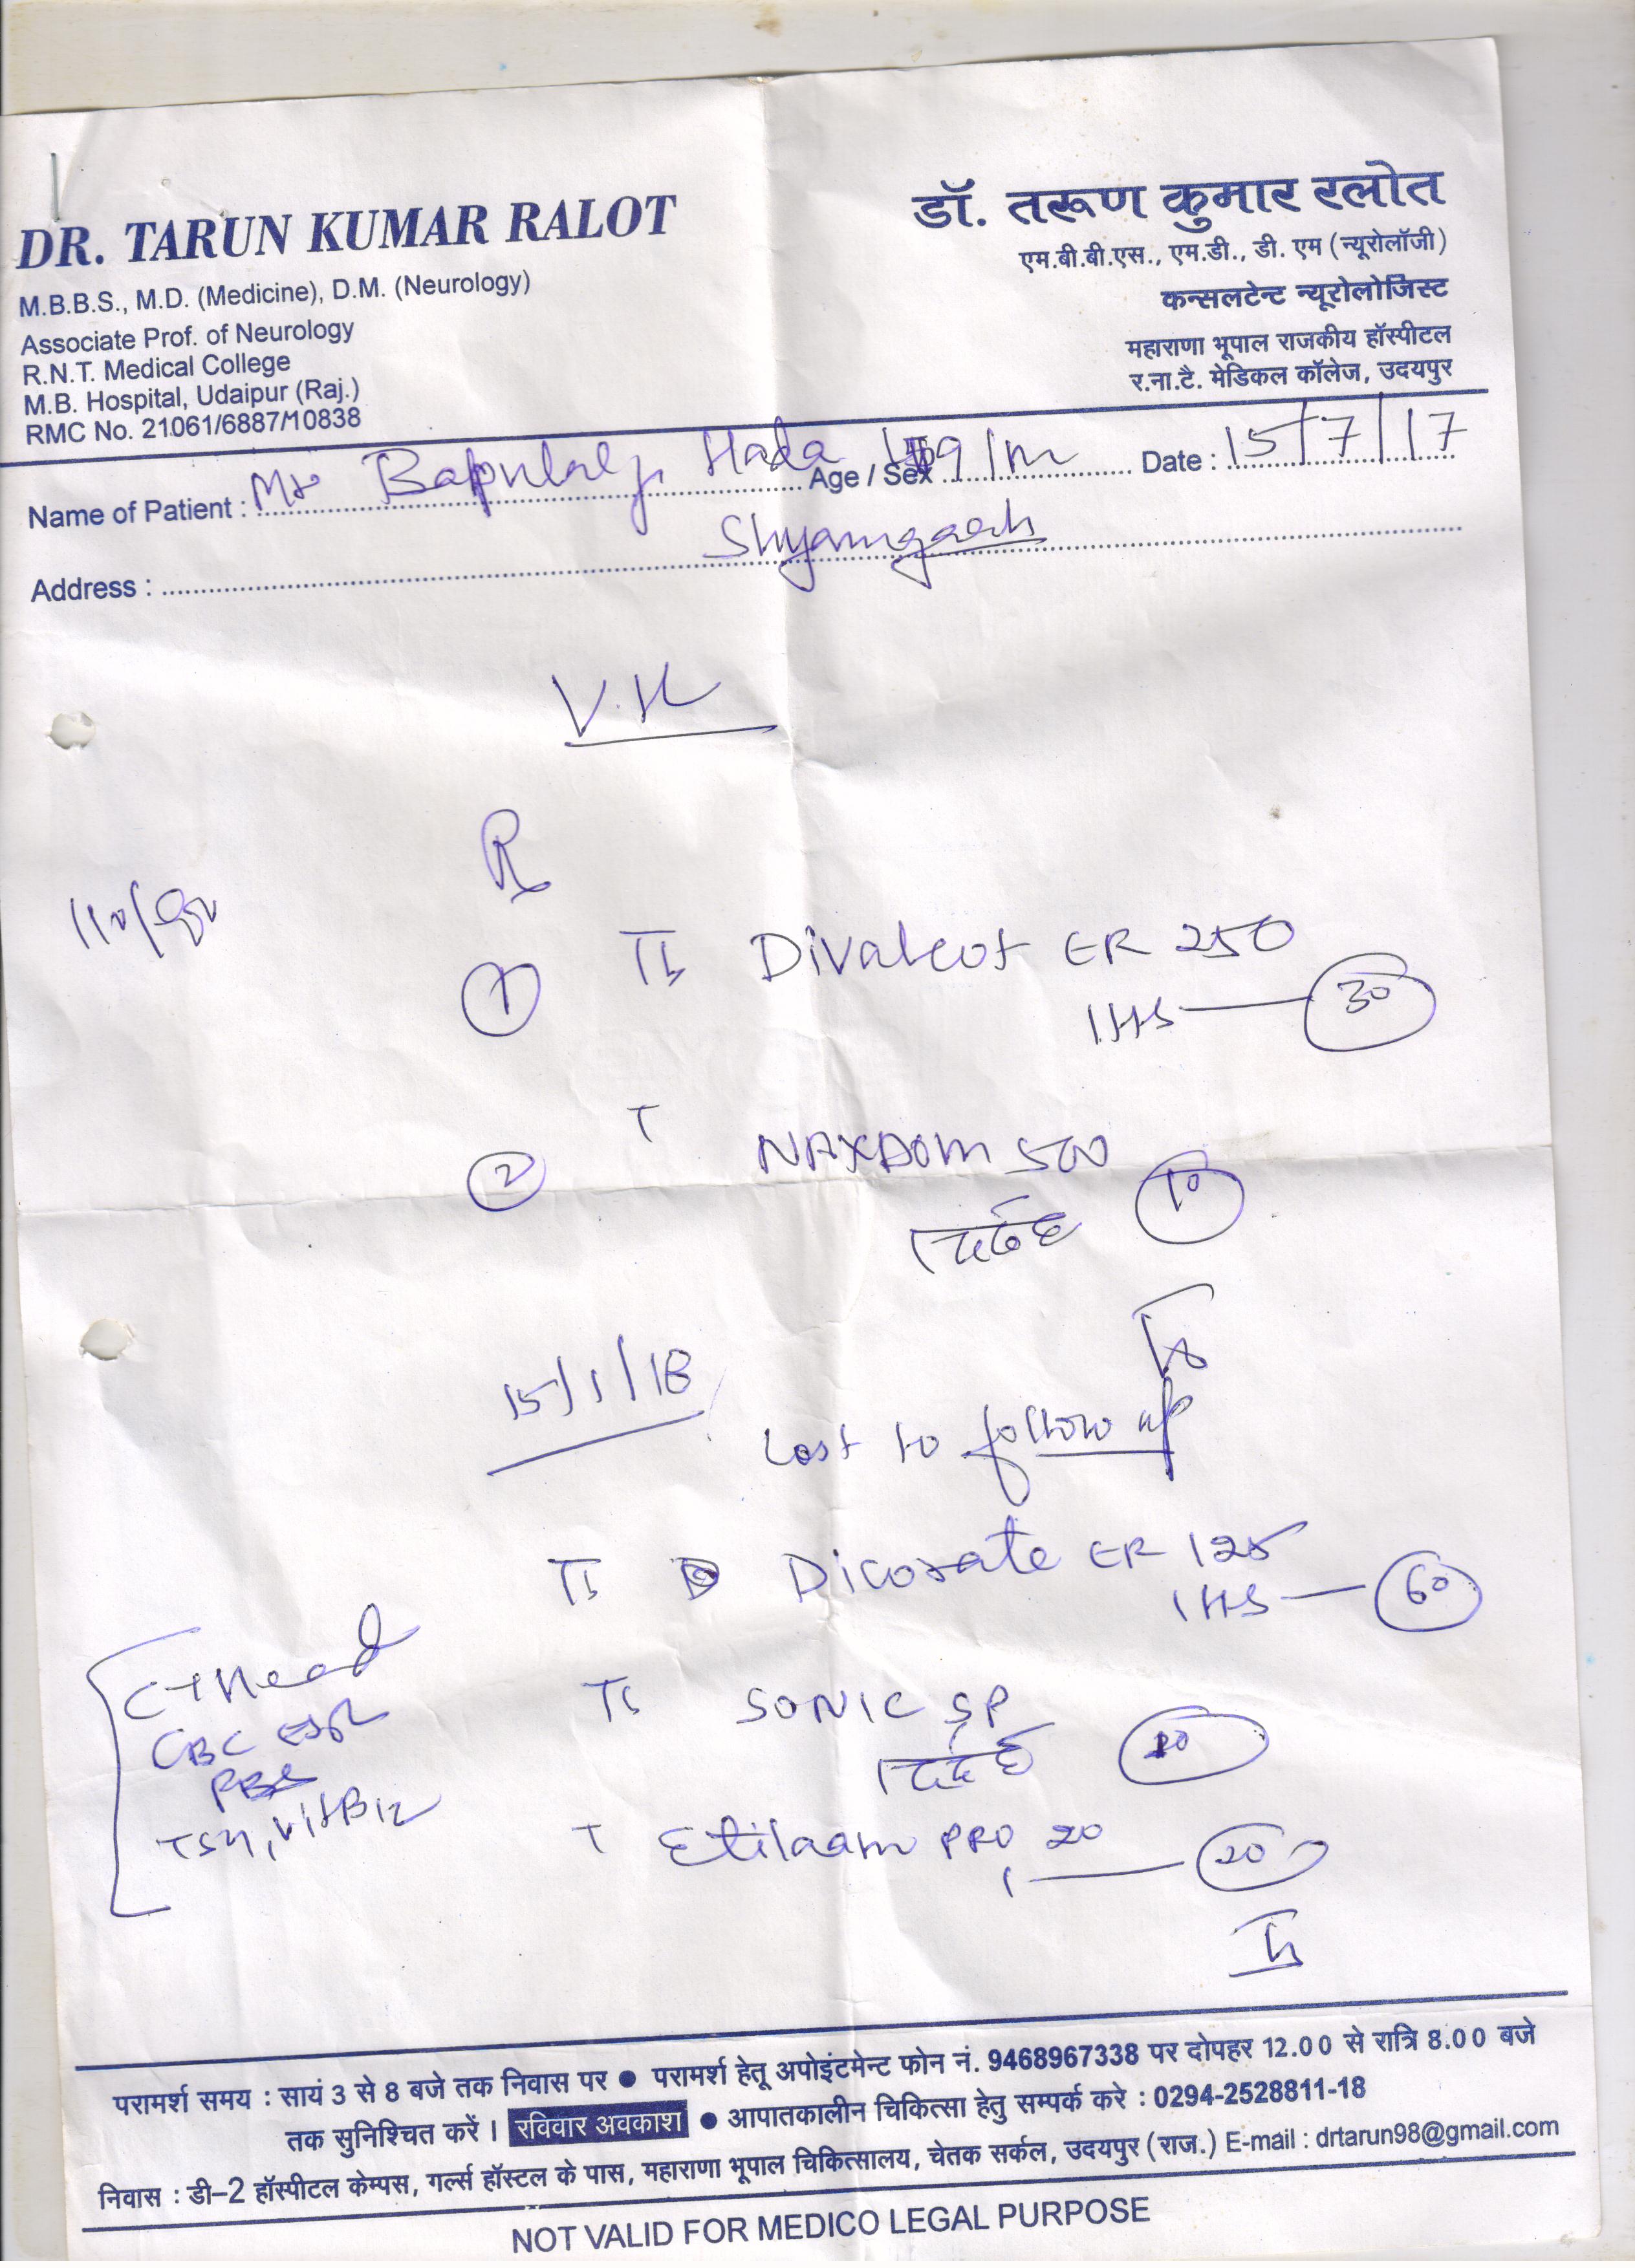 DR. TARUN KUMAR RALOT
M.B.B.S., M.D. (Medicine), D.M. (Neurology)
Associate Prof. of Neurology
R.N.T. Medical College
M.B. Hospital, Udaipur (Raj.)
RMC No. 21061/6887/10838
डॉ. तरूण कुमार रलोत
एम.बी.बी.एस., एम.डी., डी. एम (न्यूरोलॉजी)
कन्सलटेन्ट न्यूरोलोजिस्ट
महाराणा भूपाल राजकीय हॉस्पीटल
र.ना.टै. मेडिकल कॉलेज, उदयपुर
Name of Patient : Mr Bapulalji Hada Age / Sex 9/m Date : 15/7/17
Address : Shyamgarh
R
110/80
① Tb Divalcot ER 250
1 HS — 30
② T NAXDOM 500
10
15/1/18
Lost to follow up
Tb Dicorate ER 125
1 HS — 60
CT Head
CBC
TSH, Vit B12
Tb SONIC SP
10
T Etilaam PRO 20
1 — 20
परामर्श समय : सायं 3 से 8 बजे तक निवास पर ● परामर्श हेतू अपोइंटमेन्ट फोन नं. 9468967338 पर दोपहर 12.00 से रात्रि 8.00 बजे
तक सुनिश्चित करें । रविवार अवकाश ● आपातकालीन चिकित्सा हेतु सम्पर्क करे : 0294-2528811-18
निवास : डी–2 हॉस्पीटल केम्पस, गर्ल्स हॉस्टल के पास, महाराणा भूपाल चिकित्सालय, चेतक सर्कल, उदयपुर (राज.) E-mail : drtarun98@gmail.com
NOT VALID FOR MEDICO LEGAL PURPOSE